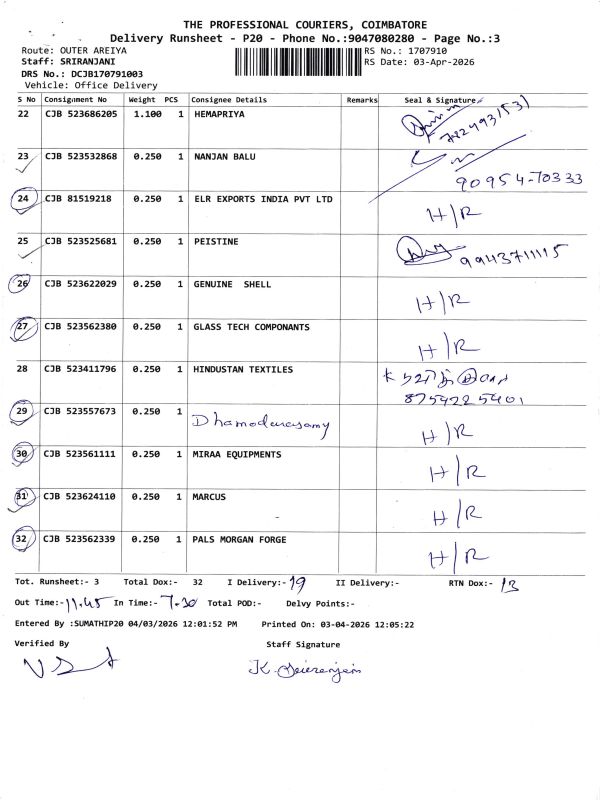 THE PROFESSIONAL COURIERS, COIMBATORE
Delivery Runsheet - P20 - Phone No.:9047080280 - Page No.:3
Route: OUTER AREIYA RS No.: 1707910
Staff: SRIRANJANI RS Date: 03-Apr-2026
DRS No.: DCJB170791003
Vehicle: Office Delivery
S No Consignment No Weight PCS Consignee Details Remarks Seal & Signature
22 CJB 523686205 1.100 1 HEMAPRIYA
23 CJB 523532868 0.250 1 NANJAN BALU 90954-70333
24 CJB 81519218 0.250 1 ELR EXPORTS INDIA PVT LTD H/R
25 CJB 523525681 0.250 1 PEISTINE 9943711115
26 CJB 523622029 0.250 1 GENUINE SHELL H/R
27 CJB 523562380 0.250 1 GLASS TECH COMPONANTS H/R
28 CJB 523411796 0.250 1 HINDUSTAN TEXTILES
8754225401
29 CJB 523557673 0.250 1 Dhamodarasamy H/R
30 CJB 523561111 0.250 1 MIRAA EQUIPMENTS H/R
31 CJB 523624110 0.250 1 MARCUS H/R
32 CJB 523562339 0.250 1 PALS MORGAN FORGE H/R
Tot. Runsheet:- 3 Total Dox:- 32 I Delivery:- 19 II Delivery:- RTN Dox:- 13
Out Time:- 11.45 In Time:- 7.30 Total POD:- Delvy Points:-
Entered By :SUMATHIP20 04/03/2026 12:01:52 PM Printed On: 03-04-2026 12:05:22
Verified By Staff Signature